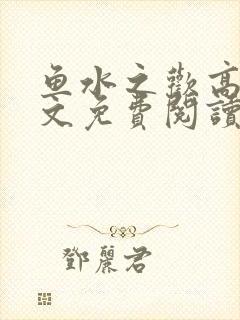 鱼水之歡高
文免費閱讀
鄧麗君